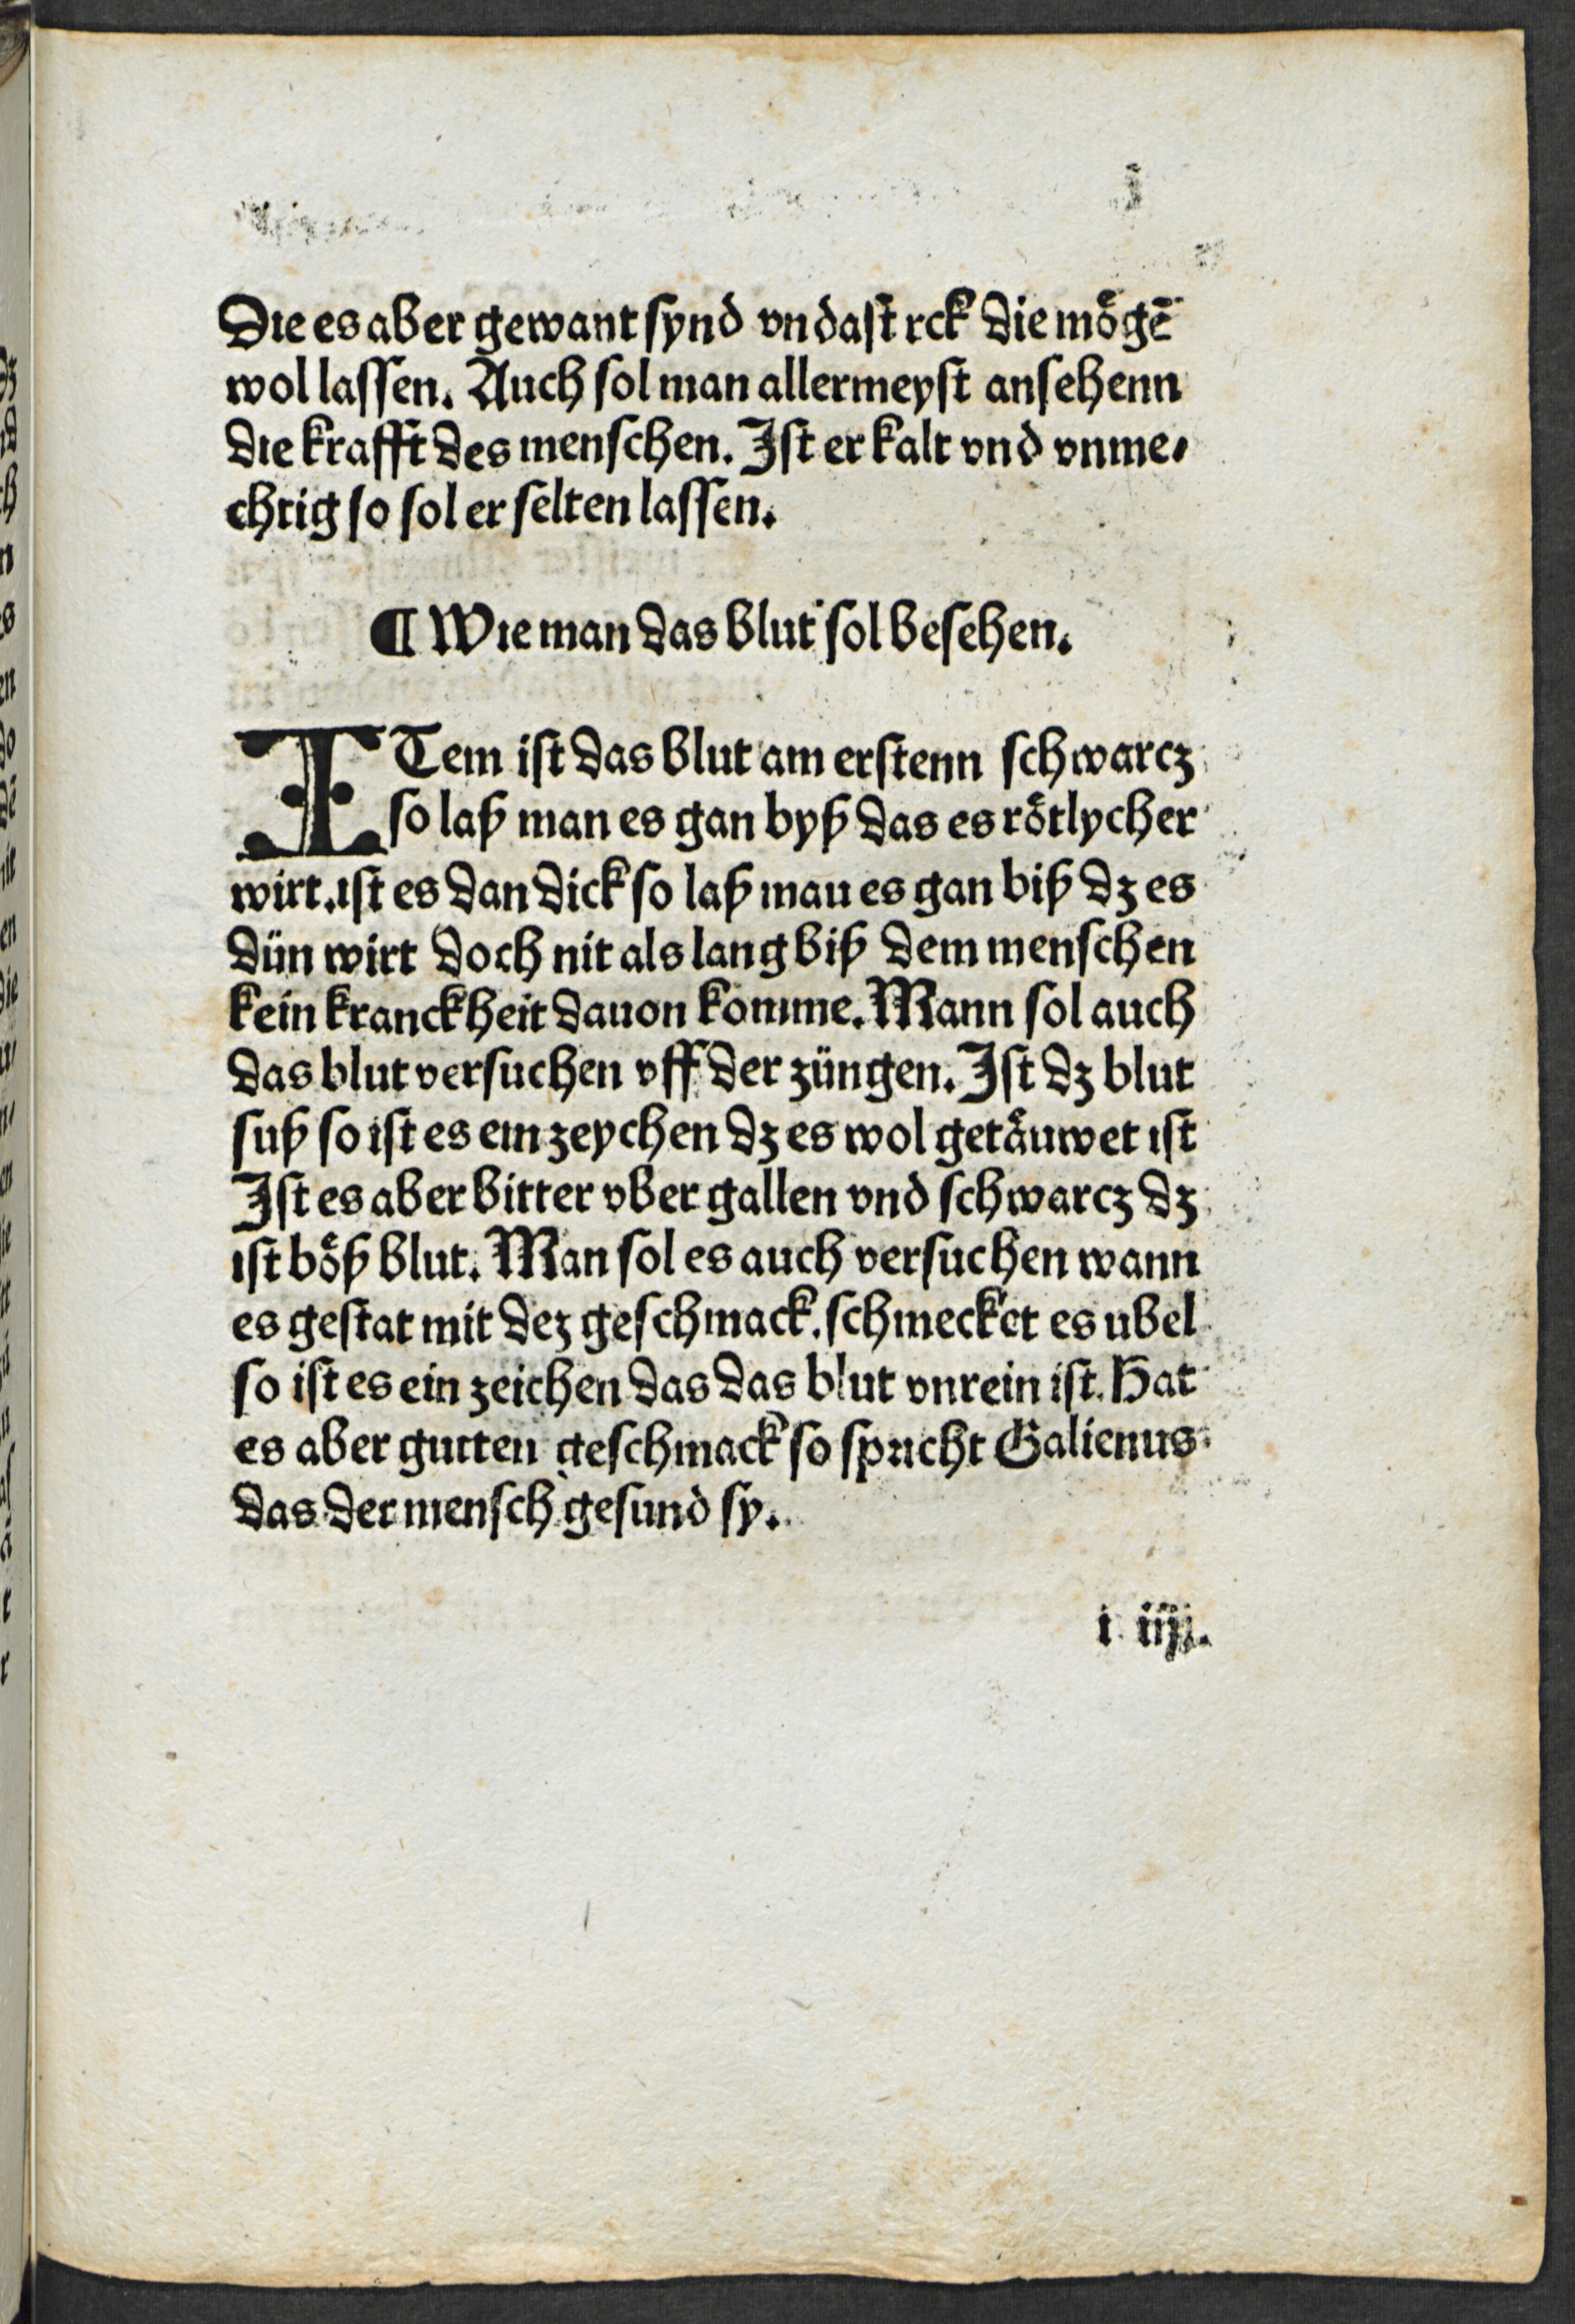 Die es aber gewant synd vn da st rck die mögē
wol lassen. Auch sol man allermeyst ansehenn
die krafft des menschen. Ist er kalt vnd vnme⸗
chtig so sol er selten lassen.
¶ Wie man das blut sol besehen.
ITem ist das blut am erstenn schwarcz
so laß man es gan byß das es rötlycher
wirt. ist es dan dick so laß mau es gan biß dz es
dün wirt doch nit als lang biß dem menschen
kein kranckheit dauon komme. Mann sol auch
das blut versuchen vff der züngen. Ist dz blut
suß so ist es ein zeychen dz es wol getäuwet ist
Ist es aber bitter vber gallen vnd schwarcz dz
ist böß blut. Man sol es auch versuchen wann
es gestat mit dez geschmack. schmecket es ubel
so ist es ein zeichen das das blut vnrein ist. Hat
es aber gutten geschmack so spricht Galienus
das der mensch gesund sy.
i iiij.